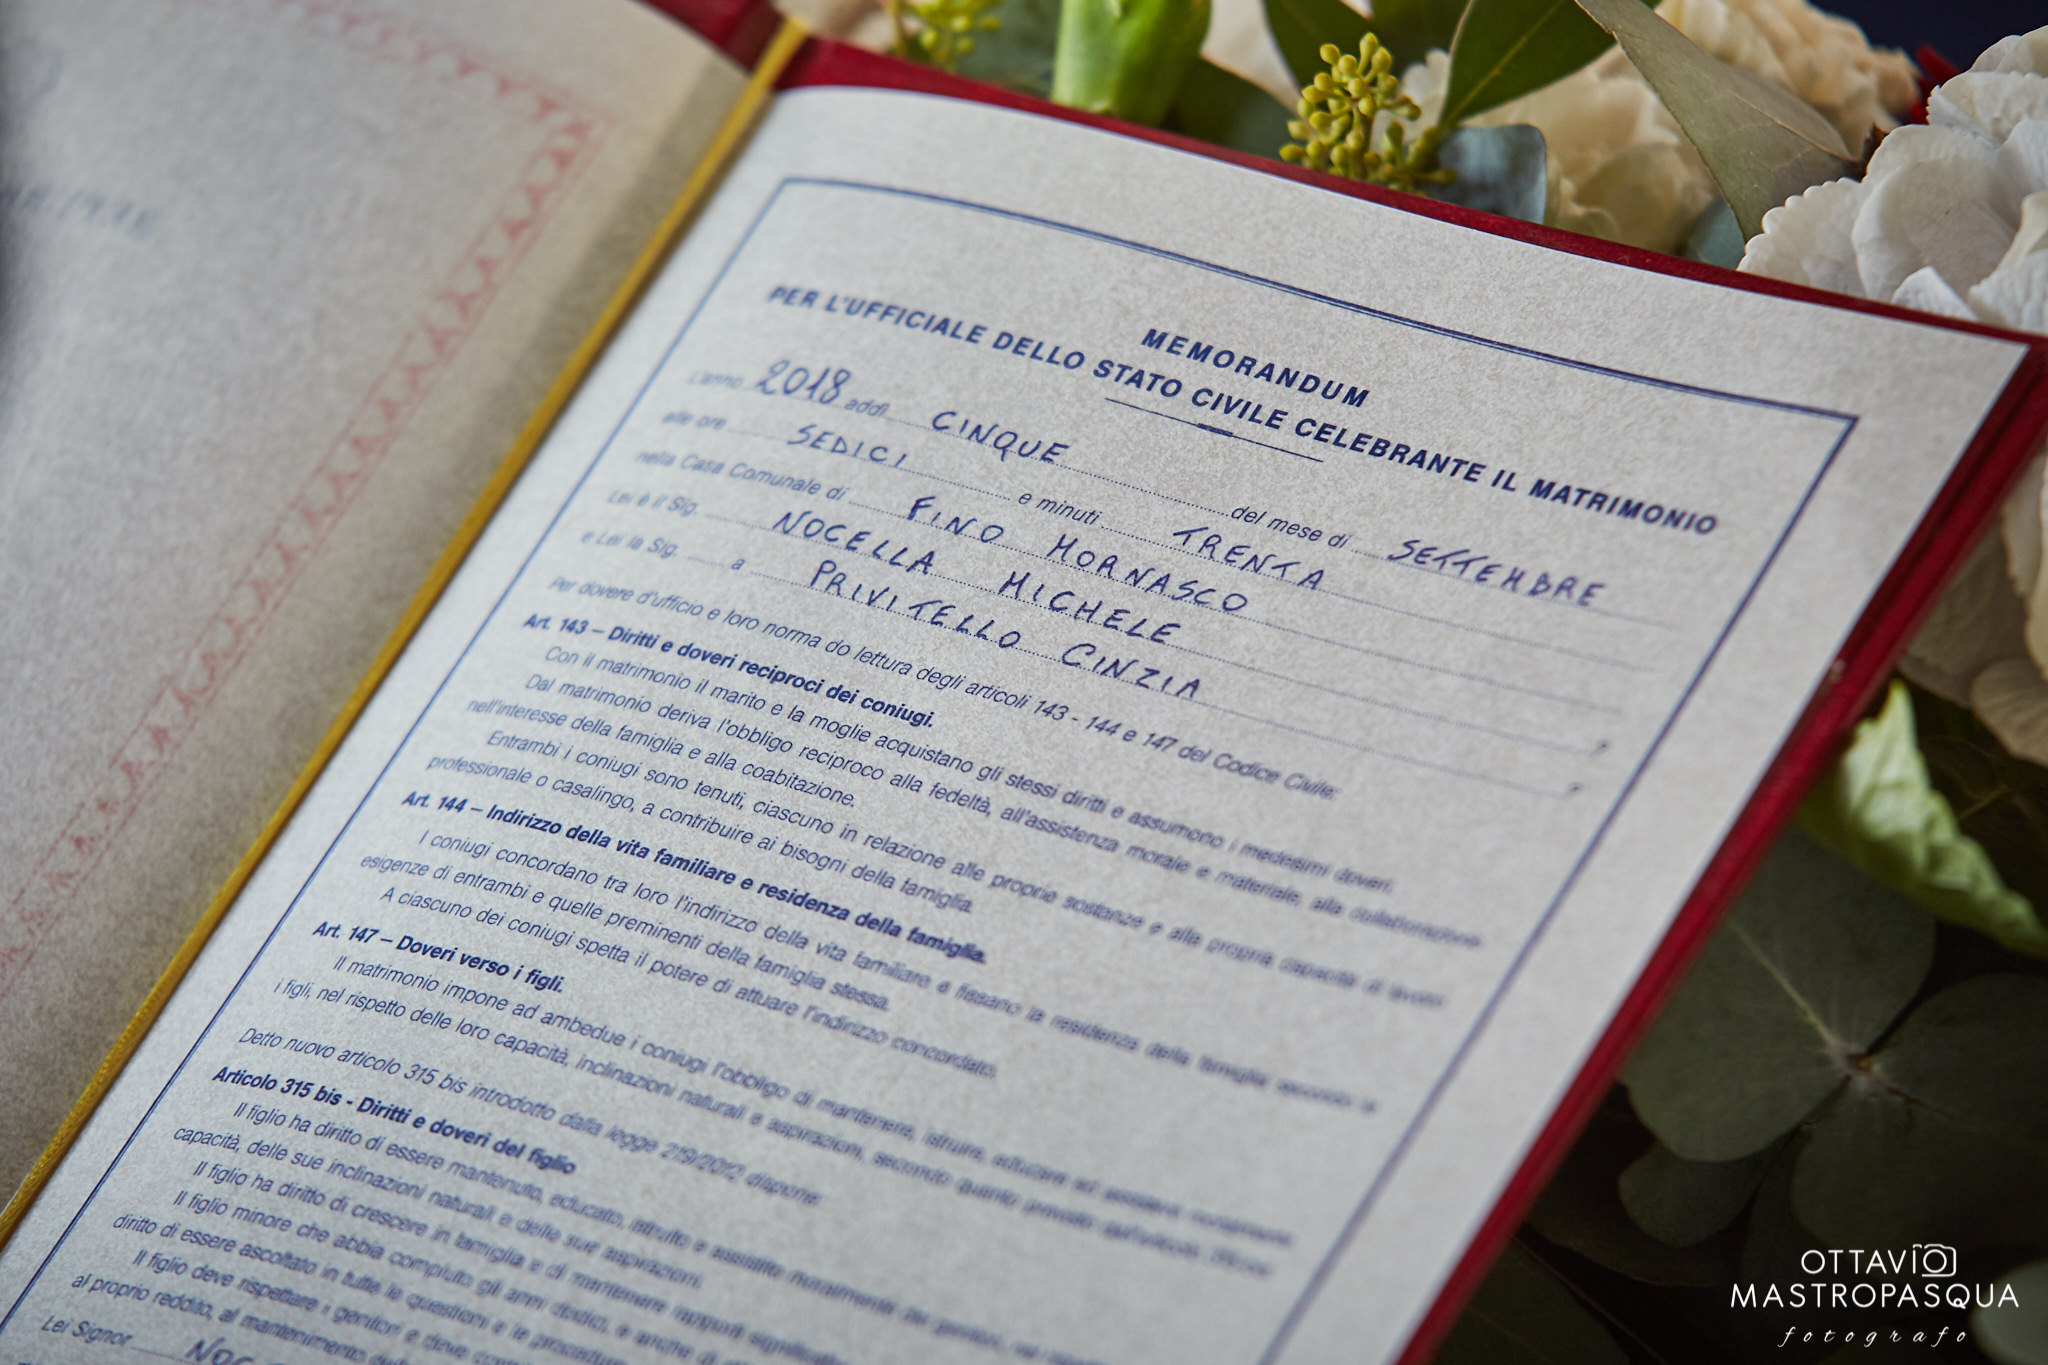 MEMORANDUM
PER L'UFFICIALE DELLO STATO CIVILE CELEBRANTE IL MATRIMONIO
L'anno 2018 addì CINQUE del mese di SETTEMBRE
alle ore SEDICI e minuti TRENTA
nella Casa Comunale di FINO MORNASCO
Lei è il Sig. NOCELLA MICHELE ?
e Lei la Sig.a PRIVITELLO CINZIA ?
Per dovere d'ufficio e loro norma do lettura degli articoli 143 - 144 e 147 del Codice Civile:
Art. 143 – Diritti e doveri reciproci dei coniugi.
Con il matrimonio il marito e la moglie acquistano gli stessi diritti e assumono i medesimi doveri.
Dal matrimonio deriva l'obbligo reciproco alla fedeltà, all'assistenza morale e materiale, alla collaborazione
nell'interesse della famiglia e alla coabitazione.
Entrambi i coniugi sono tenuti, ciascuno in relazione alle proprie sostanze e alla propria capacità di lavoro
professionale o casalingo, a contribuire ai bisogni della famiglia.
Art. 144 – Indirizzo della vita familiare e residenza della famiglia.
I coniugi concordano tra loro l'indirizzo della vita familiare e fissano la residenza della famiglia secondo le
esigenze di entrambi e quelle preminenti della famiglia stessa.
A ciascuno dei coniugi spetta il potere di attuare l'indirizzo concordato.
Art. 147 – Doveri verso i figli.
Il matrimonio impone ad ambedue i coniugi l'obbligo di mantenere, istruire, educare ed assistere moralmente
i figli, nel rispetto delle loro capacità, inclinazioni naturali e aspirazioni, secondo quanto previsto dall'articolo
Detto nuovo articolo 315 bis introdotto dalla legge 219/2012 dispone:
Articolo 315 bis - Diritti e doveri del figlio
Il figlio ha diritto di essere mantenuto, educato, istruito e assistito moralmente
capacità, delle sue inclinazioni naturali e delle sue aspirazioni.
Il figlio ha diritto di crescere in famiglia e di mantenere rapporti significativi
Il figlio minore che abbia compiuto gli anni dodici, e anche di
diritto di essere ascoltato in tutte le questioni e le procedure
Il figlio deve rispettare i genitori e deve
al proprio reddito, al mantenimento
Lei Signor
OTTAVIO
MASTROPASQUA
fotografo